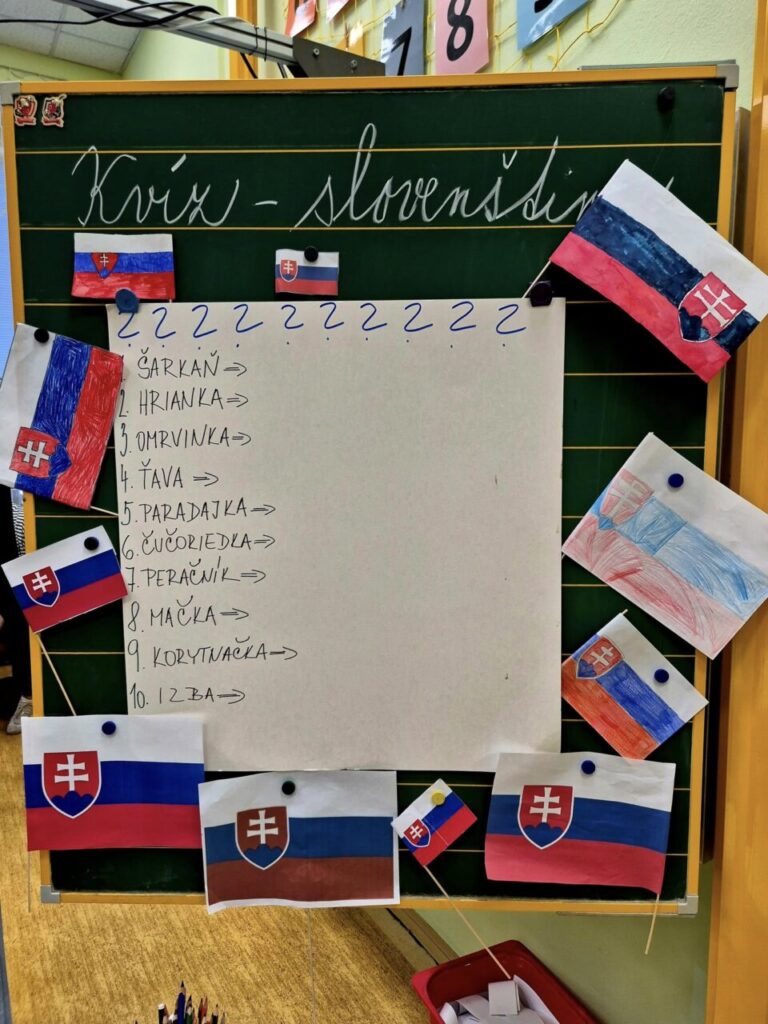 7 8
Kvíz - slovenštin
? ? ? ? ? ? ? ? ? ?
ŠARKAŇ ⇒
2. HRIANKA ⇒
3. OMRVINKA ⇒
4. ŤAVA ⇒
5. PARADAJKA ⇒
6. ČUČORIEDKA ⇒
7. PERAČNÍK ⇒
8. MAČKA ⇒
9. KORYTNAČKA ⇒
10. IZBA ⇒